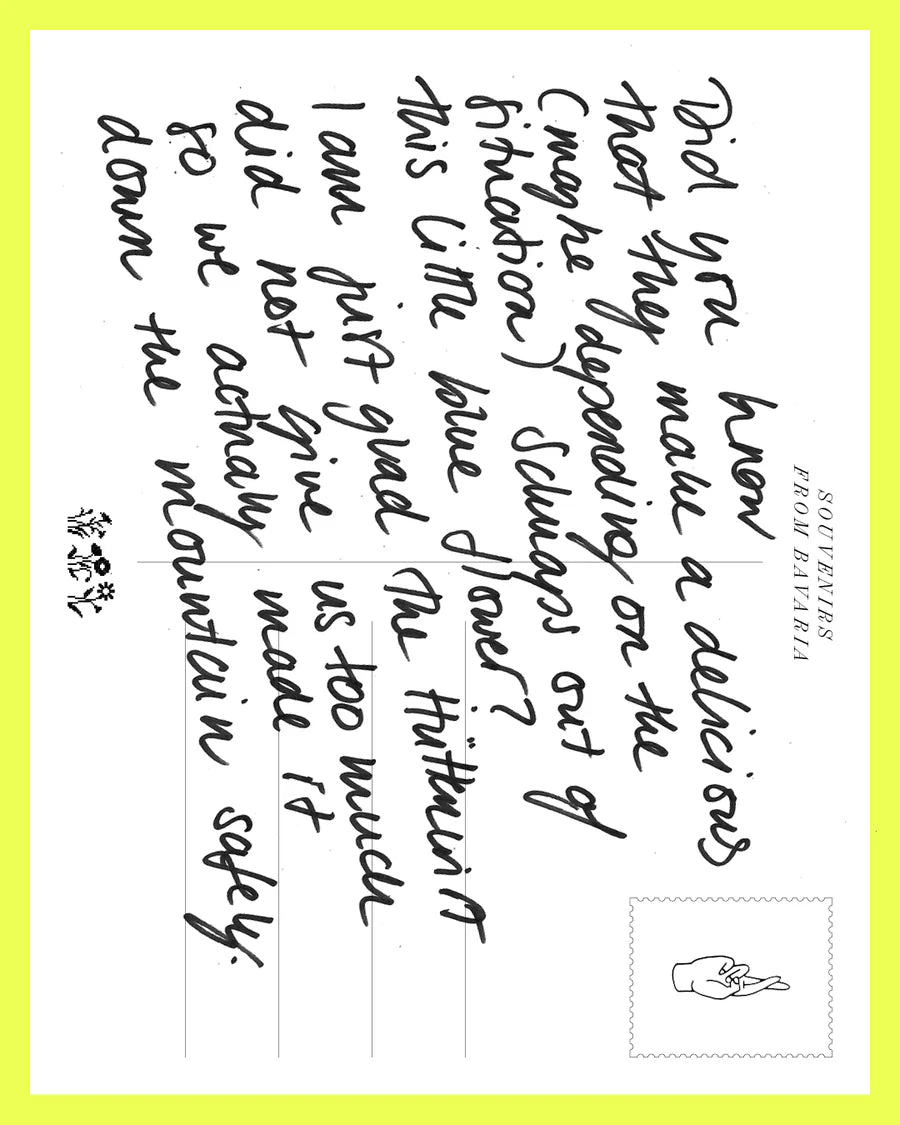 SOUVENIRS
FROM BAVARIA
Did you know
that they make a delicious
(maybe depending on the
situation) Schnaps out of
this little blue flower?
I am just glad the Hüttenwirt
did not give us too much
so we actually made it
down the mountain safely.